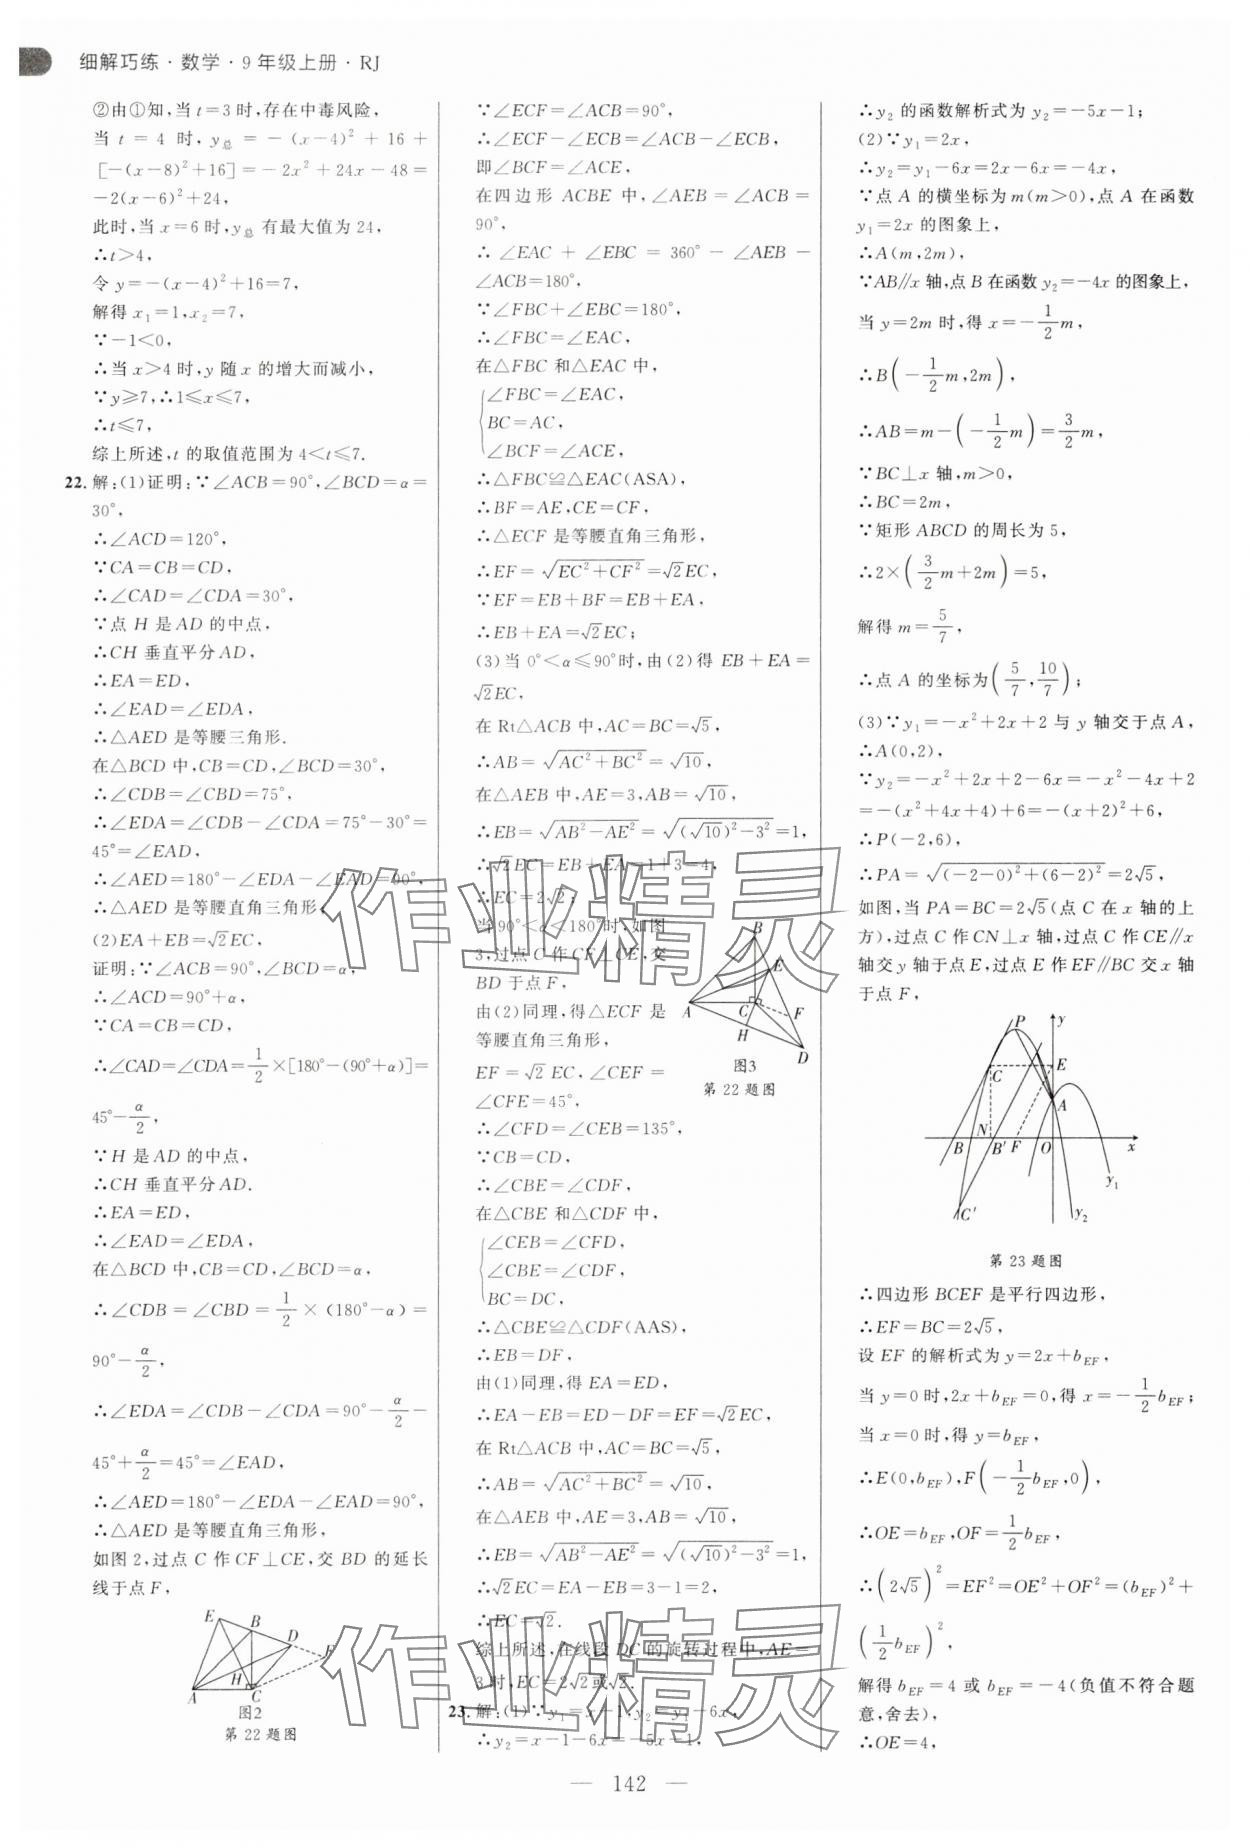 细解巧练·数学·9年级上册·RJ
②由①知,当t=3时,存在中毒风险,
当t=4时,y总=-(x-4)²+16+
[-(x-8)²+16]=-2x²+24x-48=
-2(x-6)²+24,
此时,当x=6时,y总有最大值为24,
∴t>4,
令y=-(x-4)²+16=7,
解得x₁=1,x₂=7,
∵-1<0,
∴当x>4时,y随x的增大而减小,
∵y≥7,∴1≤x≤7,
∴t≤7,
综上所述,t的取值范围为4<t≤7.
22.解:(1)证明:∵∠ACB=90°,∠BCD=α=
30°,
∴∠ACD=120°,
∵CA=CB=CD,
∴∠CAD=∠CDA=30°,
∵点H是AD的中点,
∴CH垂直平分AD,
∴EA=ED,
∴∠EAD=∠EDA,
∴△AED是等腰三角形.
在△BCD中,CB=CD,∠BCD=30°,
∴∠CDB=∠CBD=75°,
∴∠EDA=∠CDB-∠CDA=75°-30°=
45°=∠EAD,
∴∠AED=180°-∠EDA-∠EAD=90°,
∴△AED是等腰直角三角形;
(2)EA+EB=√2EC,
证明:∵∠ACB=90°,∠BCD=α,
∴∠ACD=90°+α,
∵CA=CB=CD,
∴∠CAD=∠CDA=1/2×[180°-(90°+α)]=
45°-α/2,
∵H是AD的中点,
∴CH垂直平分AD.
∴EA=ED,
∴∠EAD=∠EDA,
在△BCD中,CB=CD,∠BCD=α,
∴∠CDB=∠CBD=1/2×(180°-α)=
90°-α/2,
∴∠EDA=∠CDB-∠CDA=90°-α/2-
45°+α/2=45°=∠EAD,
∴∠AED=180°-∠EDA-∠EAD=90°,
∴△AED是等腰直角三角形,
如图2,过点C作CF⊥CE,交BD的延长
线于点F,
E B D F A H C
图2
第22题图
∵∠ECF=∠ACB=90°,
∴∠ECF-∠ECB=∠ACB-∠ECB,
即∠BCF=∠ACE,
在四边形ACBE中,∠AEB=∠ACB=
90°,
∴∠EAC+∠EBC=360°-∠AEB-
∠ACB=180°,
∵∠FBC+∠EBC=180°,
∴∠FBC=∠EAC,
在△FBC和△EAC中,
∠FBC=∠EAC,
BC=AC,
∠BCF=∠ACE,
∴△FBC≌△EAC(ASA),
∴BF=AE,CE=CF,
∴△ECF是等腰直角三角形,
∴EF=√(EC²+CF²)=√2EC,
∵EF=EB+BF=EB+EA,
∴EB+EA=√2EC;
(3)当0°<α≤90°时,由(2)得EB+EA=
√2EC,
在Rt△ACB中,AC=BC=√5,
∴AB=√(AC²+BC²)=√10,
在△AEB中,AE=3,AB=√10,
∴EB=√(AB²-AE²)=√((√10)²-3²)=1,
∴√2EC=EB+EA=1+3=4,
∴EC=2√2;
当90°<α<180°时,如图
3,过点C作CF⊥CE,交
BD于点F,
由(2)同理,得△ECF是
等腰直角三角形,
EF=√2EC,∠CEF=
∠CFE=45°,
B E A C F H D
图3
第22题图
∴∠CFD=∠CEB=135°,
∵CB=CD,
∴∠CBE=∠CDF,
在△CBE和△CDF中,
∠CEB=∠CFD,
∠CBE=∠CDF,
BC=DC,
∴△CBE≌△CDF(AAS),
∴EB=DF,
由(1)同理,得EA=ED,
∴EA-EB=ED-DF=EF=√2EC,
在Rt△ACB中,AC=BC=√5,
∴AB=√(AC²+BC²)=√10,
在△AEB中,AE=3,AB=√10,
∴EB=√(AB²-AE²)=√((√10)²-3²)=1,
∴√2EC=EA-EB=3-1=2,
∴EC=√2.
综上所述,在线段DC的旋转过程中,AE=
3时,EC=2√2或√2.
23.解:(1)∵y₁=x-1,y₂=y₁-6x,
∴y₂=x-1-6x=-5x-1,
∴y₂的函数解析式为y₂=-5x-1;
(2)∵y₁=2x,
∴y₂=y₁-6x=2x-6x=-4x,
∵点A的横坐标为m(m>0),点A在函数
y₁=2x的图象上,
∴A(m,2m),
∵AB∥x轴,点B在函数y₂=-4x的图象上,
当y=2m时,得x=-1/2m,
∴B(-1/2m,2m),
∴AB=m-(-1/2m)=3/2m,
∵BC⊥x轴,m>0,
∴BC=2m,
∵矩形ABCD的周长为5,
∴2×(3/2m+2m)=5,
解得m=5/7,
∴点A的坐标为(5/7,10/7);
(3)∵y₁=-x²+2x+2与y轴交于点A,
∴A(0,2),
∵y₂=-x²+2x+2-6x=-x²-4x+2
=-(x²+4x+4)+6=-(x+2)²+6,
∴P(-2,6),
∴PA=√((-2-0)²+(6-2)²)=2√5,
如图,当PA=BC=2√5(点C在x轴的上
方),过点C作CN⊥x轴,过点C作CE∥x
轴交y轴于点E,过点E作EF∥BC交x轴
于点F,
P y C E A N B B′ F O x y₁ C′ y₂
第23题图
∴四边形BCEF是平行四边形,
∴EF=BC=2√5,
设EF的解析式为y=2x+b_EF,
当y=0时,2x+b_EF=0,得x=-1/2b_EF;
当x=0时,得y=b_EF,
∴E(0,b_EF),F(-1/2b_EF,0),
∴OE=b_EF,OF=1/2b_EF,
∴(2√5)²=EF²=OE²+OF²=(b_EF)²+
(1/2b_EF)²,
解得b_EF=4或b_EF=-4(负值不符合题
意,舍去),
∴OE=4,
— 142 —
作业精灵
作业精灵